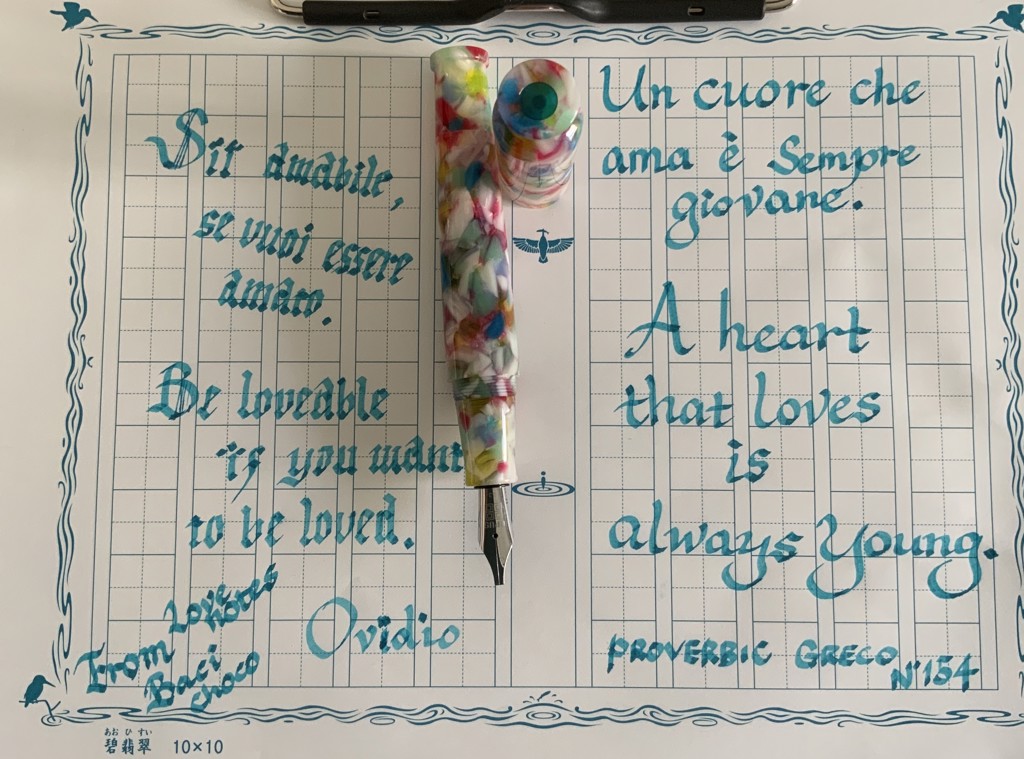 Sii amabile,
se vuoi essere
amato.
Be loveable
if you want
to be loved.
Ovidio
From Love notes
Baci choco
Un cuore che
ama è sempre
giovane.
A heart
that loves
is
always Young.
PROVERBIO GRECO
N°154
あお ひ すい
碧翡翠 10×10